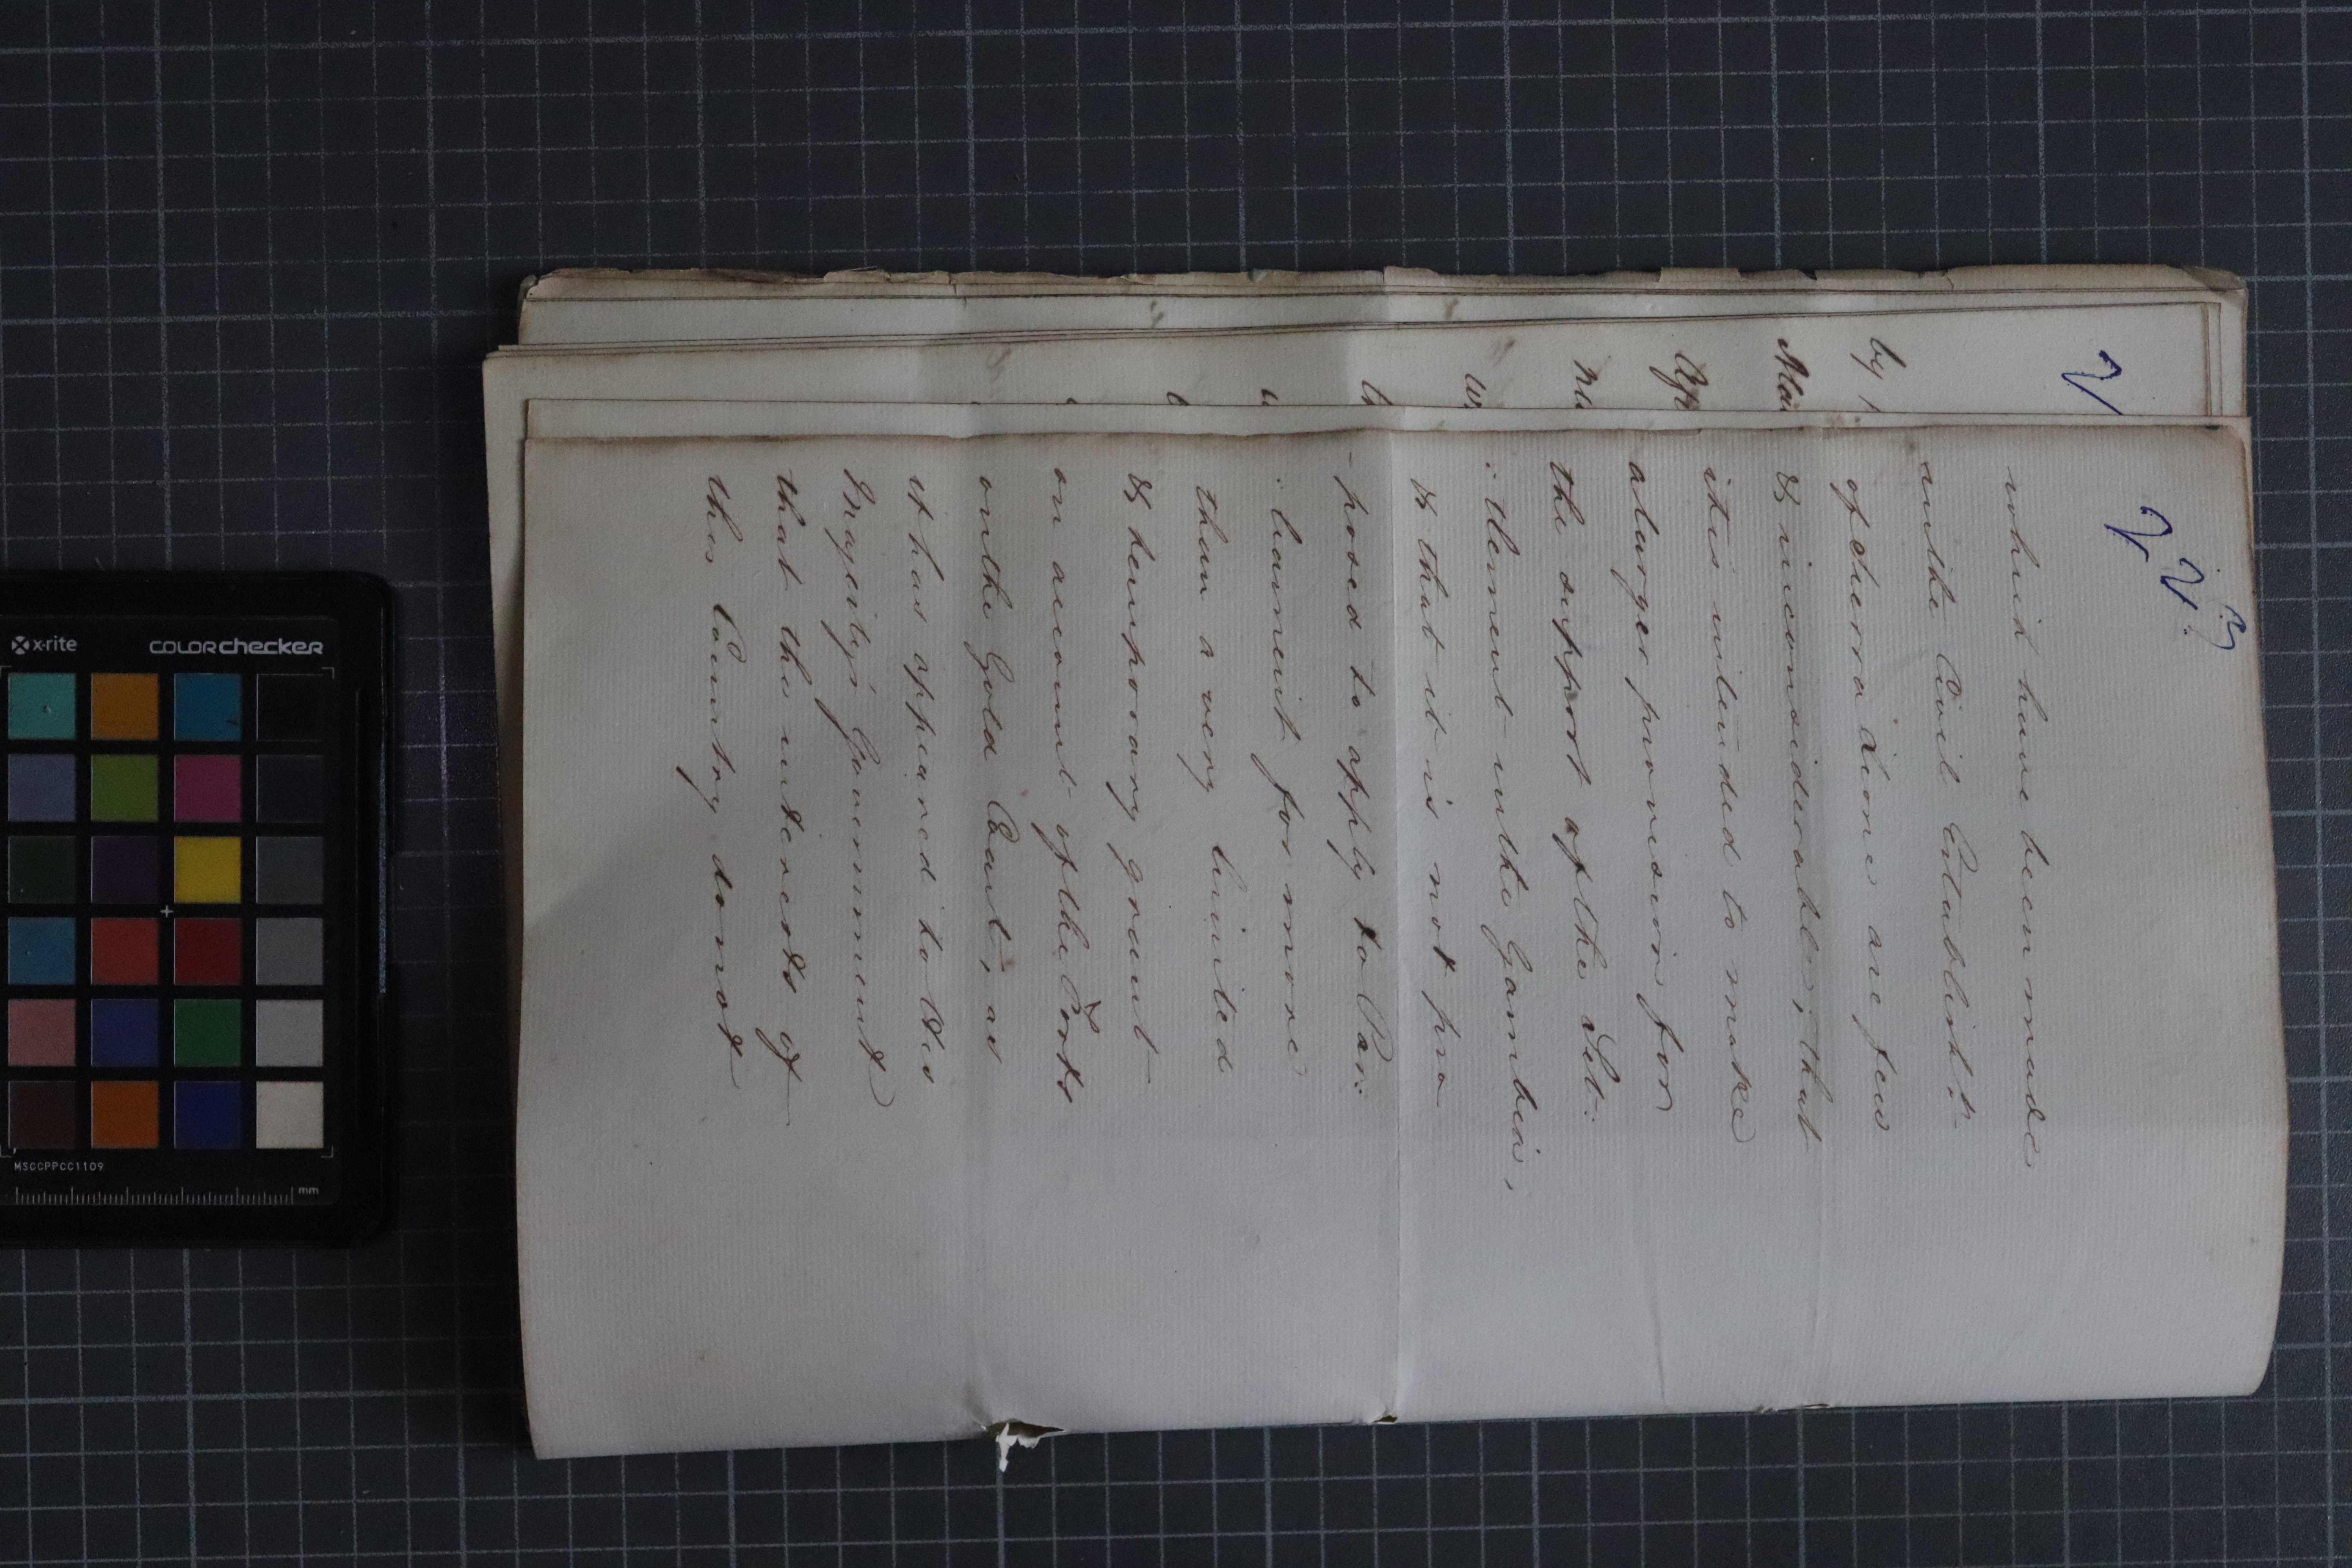 which have been made
in the Civil Establisht.
of Sierra Leone are few
& inconsiderable, that
it is intended to make
a larger provision for
the support of the Set:
:tlement in the Gambia,
& that it is not pro
-posed to apply to Par:
:liament for more
than a very limited
& temporary grant
on account of the Forts
on the Gold Coast, as
it has appeared to His
Majesty's Government
that the interests of
this Country do not
by
x-rite
COLORchecker
MSCCPPCC1109
mm